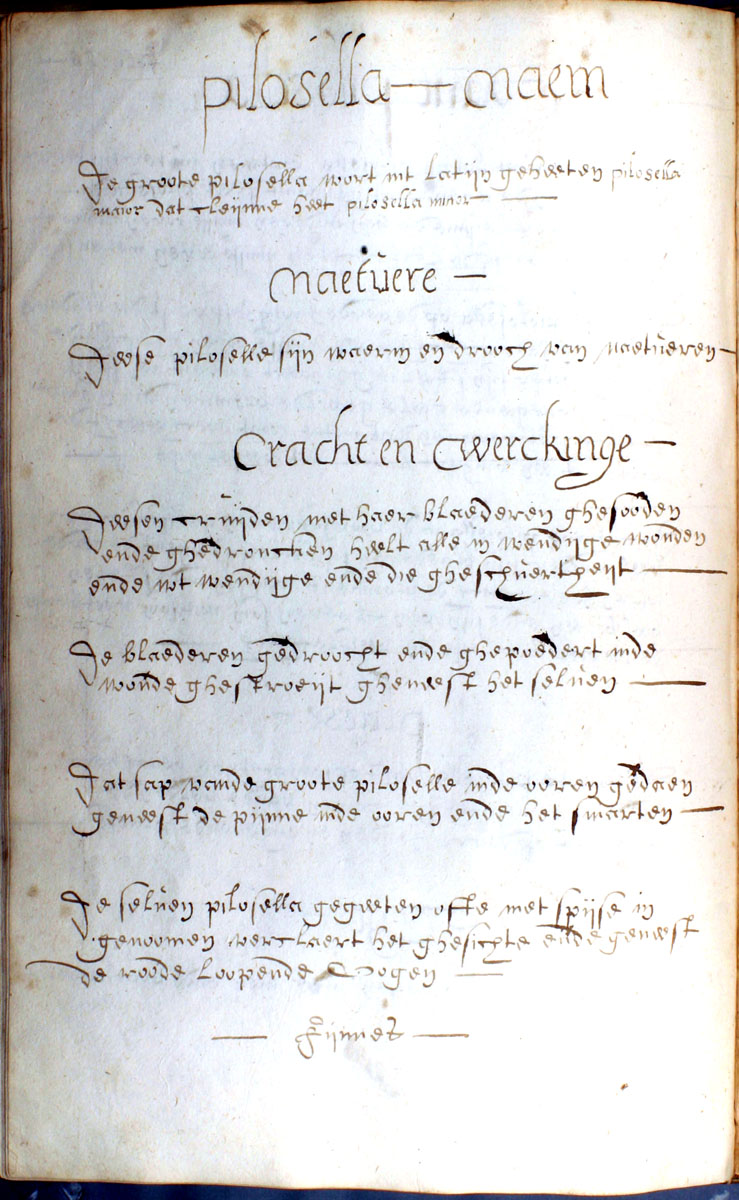 pilosella — naem
De groote pilosella wort int latijn geheeten pilosella
maior dat cleijnne heet pilosella minor —
naetůere —
Deese piloselle sijn waerm en drooch van naetůeren —
Cracht en Cwerckinge —
Deesen crůijden met haer blaederen ghesooden
ende ghedroncken heelt alle in wendijge wonden
ende wt wendijge ende die gheschůertheijt —
De blaederen gedroocht ende ghepoedert inde
wonde ghestroeijt gheneest het selůen —
Dat sap vande groote piloselle inde ooren gedaen
geneest de pijnne inde ooren ende het smarten —
De selůen pilosella gegeeten offte met spijse in
genoomen verclaert het ghesichte ende geneest
de roode loopende Oogen —